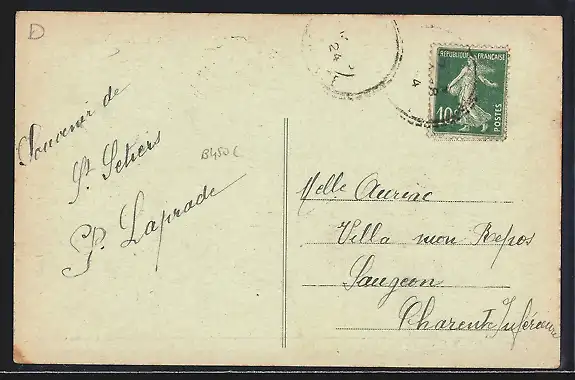 D
Souvenir de
St. Setiers
P. Laprade
B450C
24
4
RÉPUBLIQUE FRANÇAISE
10c
POSTES
Melle Auriac
Villa mon Repos
Saugeon
Charente Inférieure